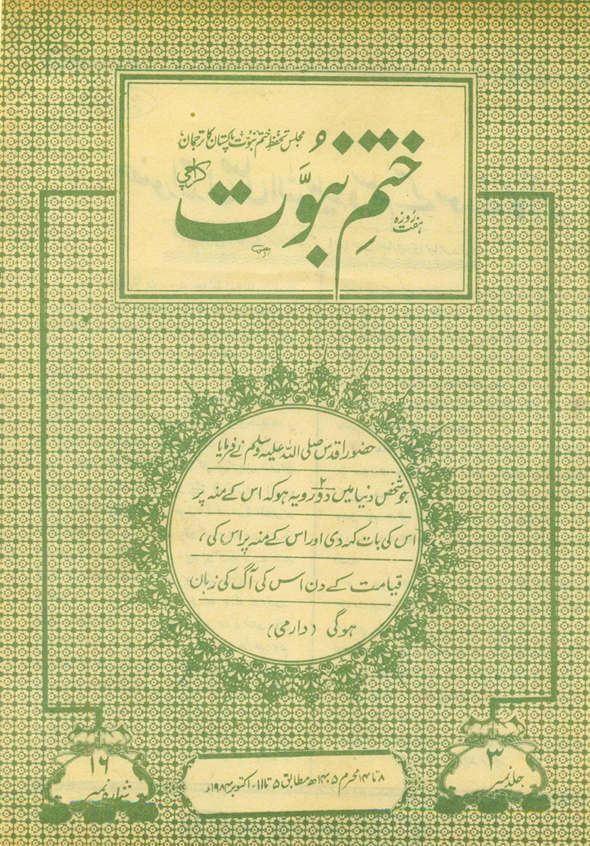 مجلس تحفظ ختم نبوت پاکستان کا ترجمان
کراچی
ختم نبوّت
ہفت روزہ
حضور اقدس صلی اللہ علیہ وسلم نے فرمایا
جو شخص دنیا میں دو رویہ ہو کہ اس کے منہ پر
اس کی بات کہہ دی اور اس کے منہ پر اس کی ،
قیامت کے دن اس کی آگ کی زبان
ہوگی (دارمی)
جلد نمبر ۳
شمارہ نمبر ۱۶
۸ تا ۱۴ محرم ۱۴۰۵ھ مطابق ۵ تا ۱۱ اکتوبر ۱۹۸۴ء